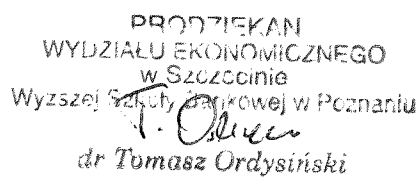 PRODZIEKAN
WYDZIAŁU EKONOMICZNEGO
w Szczecinie
Wyższej Szkoły Bankowej w Poznaniu
dr Tomasz Ordysiński